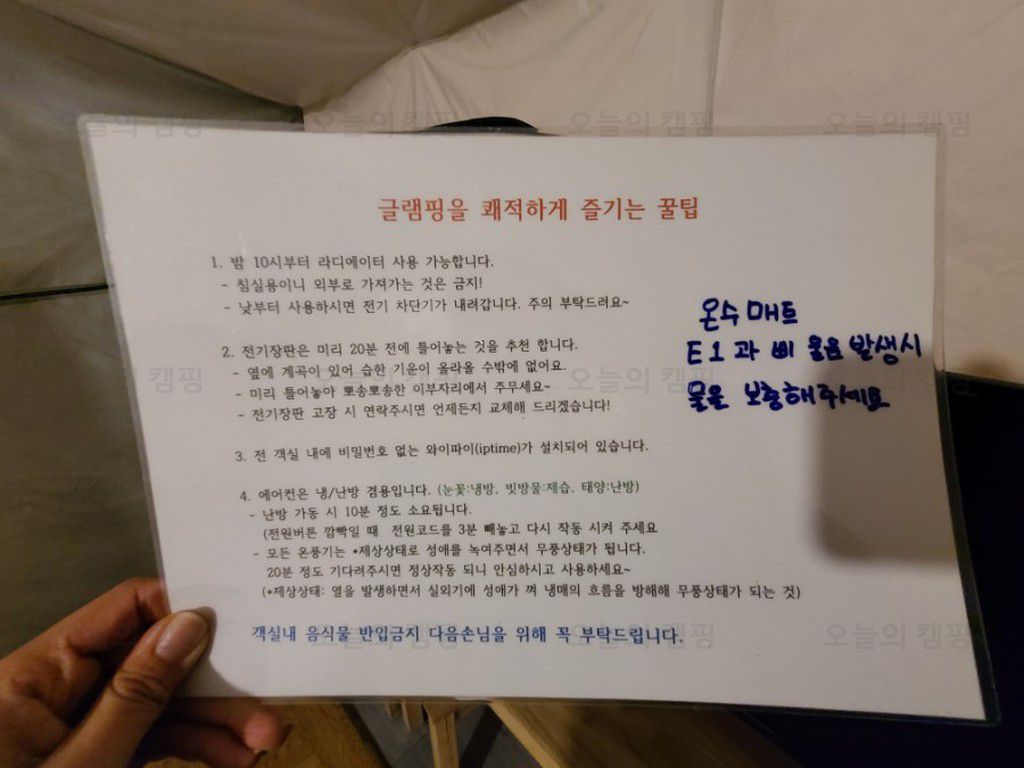 글램핑을 쾌적하게 즐기는 꿀팁
1. 밤 10시부터 라디에이터 사용 가능합니다.
- 침실용이니 외부로 가져가는 것은 금지!
- 낮부터 사용하시면 전기 차단기가 내려갑니다. 주의 부탁드려요~
2. 전기장판은 미리 20분 전에 틀어놓는 것을 추천 합니다.
- 옆에 계곡이 있어 습한 기운이 올라올 수밖에 없어요.
- 미리 틀어놓아 뽀송뽀송한 이부자리에서 주무세요~
- 전기장판 고장 시 연락주시면 언제든지 교체해 드리겠습니다!
3. 전 객실 내에 비밀번호 없는 와이파이(iptime)가 설치되어 있습니다.
4. 에어컨은 냉/난방 겸용입니다. (눈꽃:냉방, 빗방물:제습, 태양:난방)
- 난방 가동 시 10분 정도 소요됩니다.
(전원버튼 깜빡일 때 전원코드를 3분 빼놓고 다시 작동 시켜 주세요
- 모든 온풍기는 *제상상태로 성애를 녹여주면서 무풍상태가 됩니다.
20분 정도 기다려주시면 정상작동 되니 안심하시고 사용하세요~
(*제상상태: 열을 발생하면서 실외기에 성애가 껴 냉매의 흐름을 방해해 무풍상태가 되는 것)
객실내 음식물 반입금지 다음손님을 위해 꼭 부탁드립니다.
온수매트
E1과 삐 울음발생시
물을 보충해주세요
오늘의 캠핑
오늘의 캠핑
오늘의 캠핑
오늘의 캠핑
캠핑
오늘의 캠핑
오늘의 캠핑
오늘의 캠핑
오늘의 캠핑
오늘의 캠핑